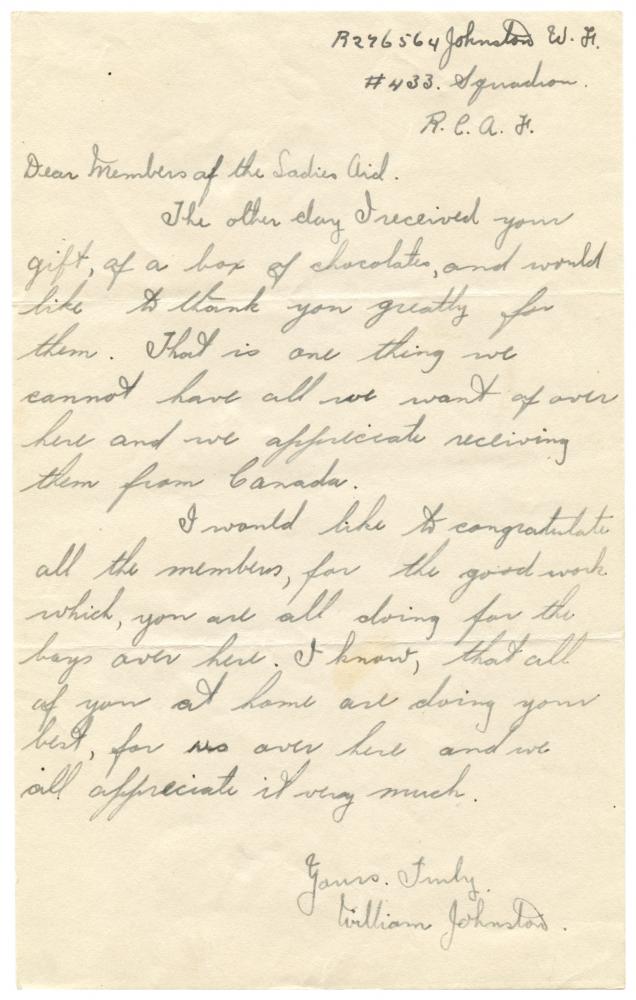 R276564 Johnston W. H.
#433. Squadron.
R. C. A. F.
Dear Members of the Ladies Aid.
The other day I received your
gift, of a box of chocolates, and would
like to thank you greatly for
them. That is one thing we
cannot have all we want of over
here and we appreciate receiving
them from Canada.
I would like to congratulate
all the members, for the good work
which, you are all doing for the
boys over here. I know, that all
of you at home are doing your
best, for us over here and we
all appreciate it very much.
Yours. Truly.
William Johnston.